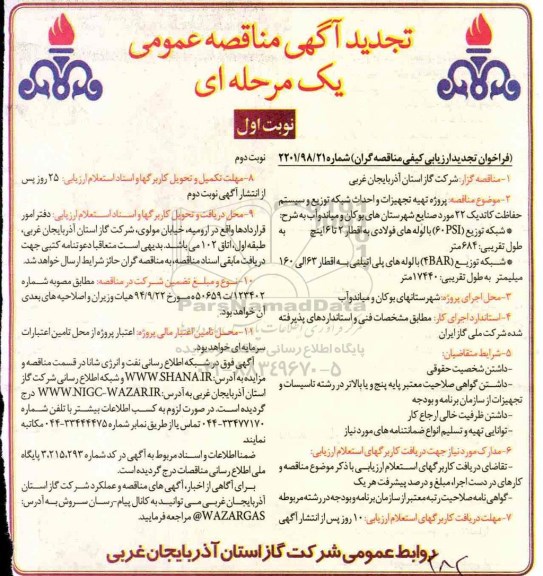 تجدید آگهی مناقصه عمومی
یک مرحله ای
نوبت اول
(فراخوان تجدید ارزیابی کیفی مناقصه گران) شماره ۲۲۰۱/۹۸/۲۱
۱-مناقصه گزار: شرکت گاز استان آذربایجان غربی
۲-موضوع مناقصه: پروژه تهیه تجهیزات و احداث شبکه توزیع و سیستم
حفاظت کاتدیک ۲۲ مورد صنایع شهرستان های بوکان و میاندوآب به شرح:
● شبکه توزیع (۶۰PSI) با لوله های فولادی به اقطار ۲ تا ۶ اینچ به
طول تقریبی: ۶۸۴ متر
● شبکه توزیع (۴BAR) با لوله های پلی اتیلنی به اقطار ۶۳ الی ۱۶۰
میلیمتر به طول تقریبی: ۱۷۴۴۰ متر
۳-محل اجرای پروژه: شهرستانهای بوکان و میاندوآب
۴-استاندارد اجرای کار: مطابق مشخصات فنی و استانداردهای پذیرفته
شده شرکت ملی گاز ایران
۵-شرایط متقاضیان:
-داشتن شخصیت حقوقی
-داشتن گواهی صلاحیت معتبر پایه پنج و یا بالاتر در رشته تاسیسات و
تجهیزات از سازمان برنامه و بودجه
-داشتن ظرفیت خالی ارجاع کار
-توانایی تهیه و تسلیم انواع ضمانتنامه های مورد نیاز
۶-مدارک مورد نیاز جهت دریافت کاربرگهای استعلام ارزیابی:
-تقاضای دریافت کاربرگهای استعلام ارزیابی با ذکر موضوع مناقصه و
کارهای در دست اجرا، مبلغ و درصد پیشرفت هر یک
-گواهی نامه صلاحیت رتبه معتبر از سازمان برنامه و بودجه در رشته مربوطه
۷-مهلت دریافت کاربرگهای استعلام ارزیابی: ۱۰ روز پس از انتشار آگهی
نوبت دوم
۸-مهلت تکمیل و تحویل کاربرگها و اسناد استعلام ارزیابی: ۲۵ روز پس
از انتشار آگهی نوبت دوم
۹-محل دریافت و تحویل کاربرگها و اسناد استعلام ارزیابی: دفتر امور
قراردادها واقع در ارومیه، خیابان مولوی، شرکت گاز استان آذربایجان غربی،
طبقه اول، اتاق ۱۰۲ می باشند. بدیهی است متعاقبا دعوتنامه کتبی جهت
دریافت مابقی اسناد مناقصه، به مناقصه گران حائز شرایط ارسال خواهد شد.
۱۰-نوع و مبلغ تضمین شرکت در مناقصه: مطابق مصوبه شماره
۱۲۳۴۰۲/ت۵۰۶۵۹ه مورخ ۹۴/۹/۲۲ هیات وزیران و اصلاحیه های بعدی
آن خواهد بود.
۱۱-محل تامین اعتبار مالی پروژه: اعتبار پروژه از محل تامین اعتبارات
سرمایه ای خواهد بود.
آگهی فوق در شبکه اطلاع رسانی نفت و انرژی شانا در قسمت مناقصه و
مزایده به آدرس: WWW.SHANA.IR و شبکه اطلاع رسانی شرکت گاز
استان آذربایجان غربی به آدرس: WWW.NIGC-WAZAR.IR درج
گردیده است. در صورت لزوم به کسب اطلاعات بیشتر با تلفن شماره
۰۴۴-۳۳۴۷۷۱۷۰ تماس یا از طریق نمابر شماره ۰۴۴-۳۳۴۴۴۴۷۵ مکاتبه
نمایند
ضمنا اطلاعات و اسناد مربوط به آگهی در کد شماره ۳.۲۱۵.۲۹۳ پایگاه
ملی اطلاع رسانی مناقصات درج گردیده است.
برای آگاهی از اخبار، آگهی های مناقصه و عملکرد شرکت گاز استان
آذربایجان غربی می توانید به کانال پیام-رسان سروش به آدرس:
@WAZARGAS مراجعه فرمایید.
روابط عمومی شرکت گاز استان آذربایجان غربی
ParsNamadData